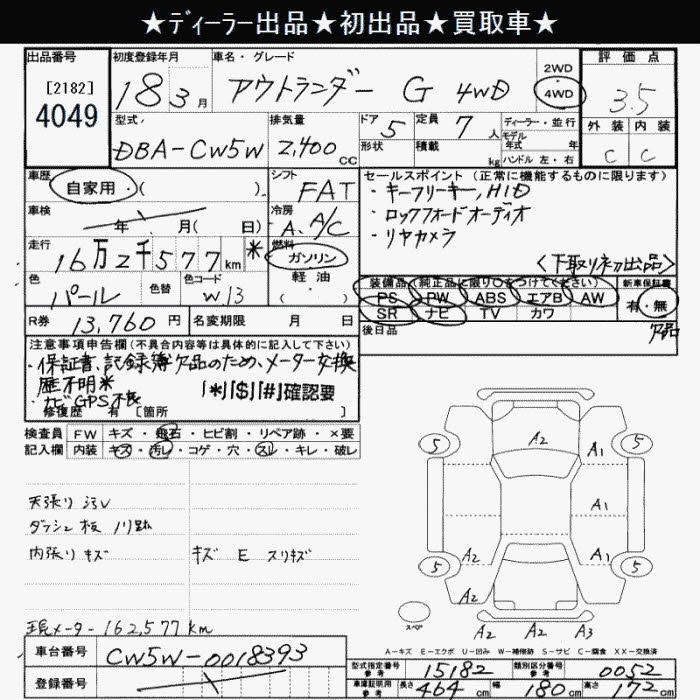 ★ディーラー出品★初出品★買取車★
出品番号 初度登録年月 車名・グレード 2WD 評価点
[2182] 4049 18 3月 アウトランダー G 4WD ・ 4WD 3.5
型式 排気量 ドア 5 定員 7人 ディーラー・並行 外装 内装
DBA-CW5W 2,400cc 形状 積載 kg モデル年式 年 C C
ハンドル 左・右
車歴 シフト セールスポイント(正常に機能するものに限ります)
自家用・( ) FAT ・キーフリーキー, HID
車検 年 月( 日) 冷房 A, A/C ・ロックフォードオーディオ
走行 燃料 ・リヤカメラ
16万2千577km * ガソリン <下取り初出品>
色 色替 色コード 軽油 装備品(純正品に限り○をつけてください) 新車保証書
パール W13 ( ) PS PW ABS エアB AW 有・無
R券 13,760円 名変期限 月 日 SR ナビ TV カワ 欠品
後日品
注意事項申告欄(不具合内容等は具体的に記入して下さい)
・保証書、記録簿欠品のため、メーター交換
歴不明*
・ナビGPS不良 |*||$||#|確認要
修復歴 有 [箇所
検査員 FW キズ・飛石・ヒビ割・リペア跡・×要
記入欄 内装 キズ・汚レ・コゲ・穴・スレ・キレ・破レ
天張り 汚レ
ダッシュ板 ノリ跡
内張り キズ キズ E スリキズ
現メーター 162,577km
A2
5 A1 5
A1
A2 A1
5 A2 5
A2
スペア A2 A2 A3
A-キズ E-エクボ U-凹み W-補修跡 S-サビ C-腐食 XX-交換済
車台番号 CW5W-0018393
型式指定番号 参考 15182 類別区分番号 参考 0052
登録番号
車庫証明用 参考 長さ 464cm 幅 180cm 高さ 172cm